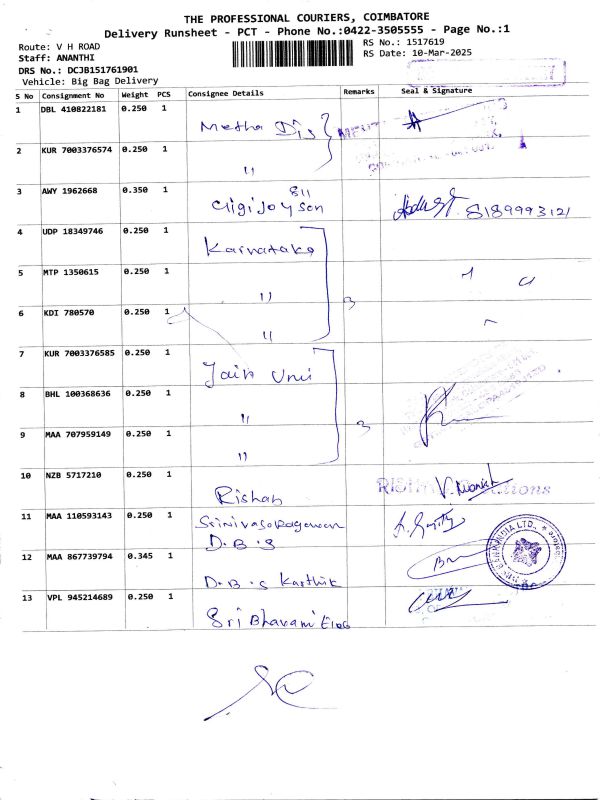 THE PROFESSIONAL COURIERS, COIMBATORE
Delivery Runsheet - PCT - Phone No.:0422-3505555 - Page No.:1
Route: V H ROAD
RS No.: 1517619
Staff: ANANTHI
RS Date: 10-Mar-2025
DRS No.: DCJB151761901
Vehicle: Big Bag Delivery
S No Consignment No Weight PCS Consignee Details Remarks Seal & Signature
1 DBL 410822181 0.250 1 Metha Dis
2 KUR 7003376574 0.250 1 "
3 AWY 1962668 0.350 1 Gigi Joyson 8189993121
4 UDP 18349746 0.250 1 Karnataka
5 MTP 1350615 0.250 1 "
3
6 KDI 780570 0.250 1 "
7 KUR 7003376585 0.250 1 Jain Uni
8 BHL 100368636 0.250 1 "
3
9 MAA 707959149 0.250 1 "
10 NZB 5717210 0.250 1 Rishab
11 MAA 110593143 0.250 1 Srinivasaragavan
D.B.S
12 MAA 867739794 0.345 1 D.B.S Karthik
13 VPL 945214689 0.250 1 Sri Bhavani